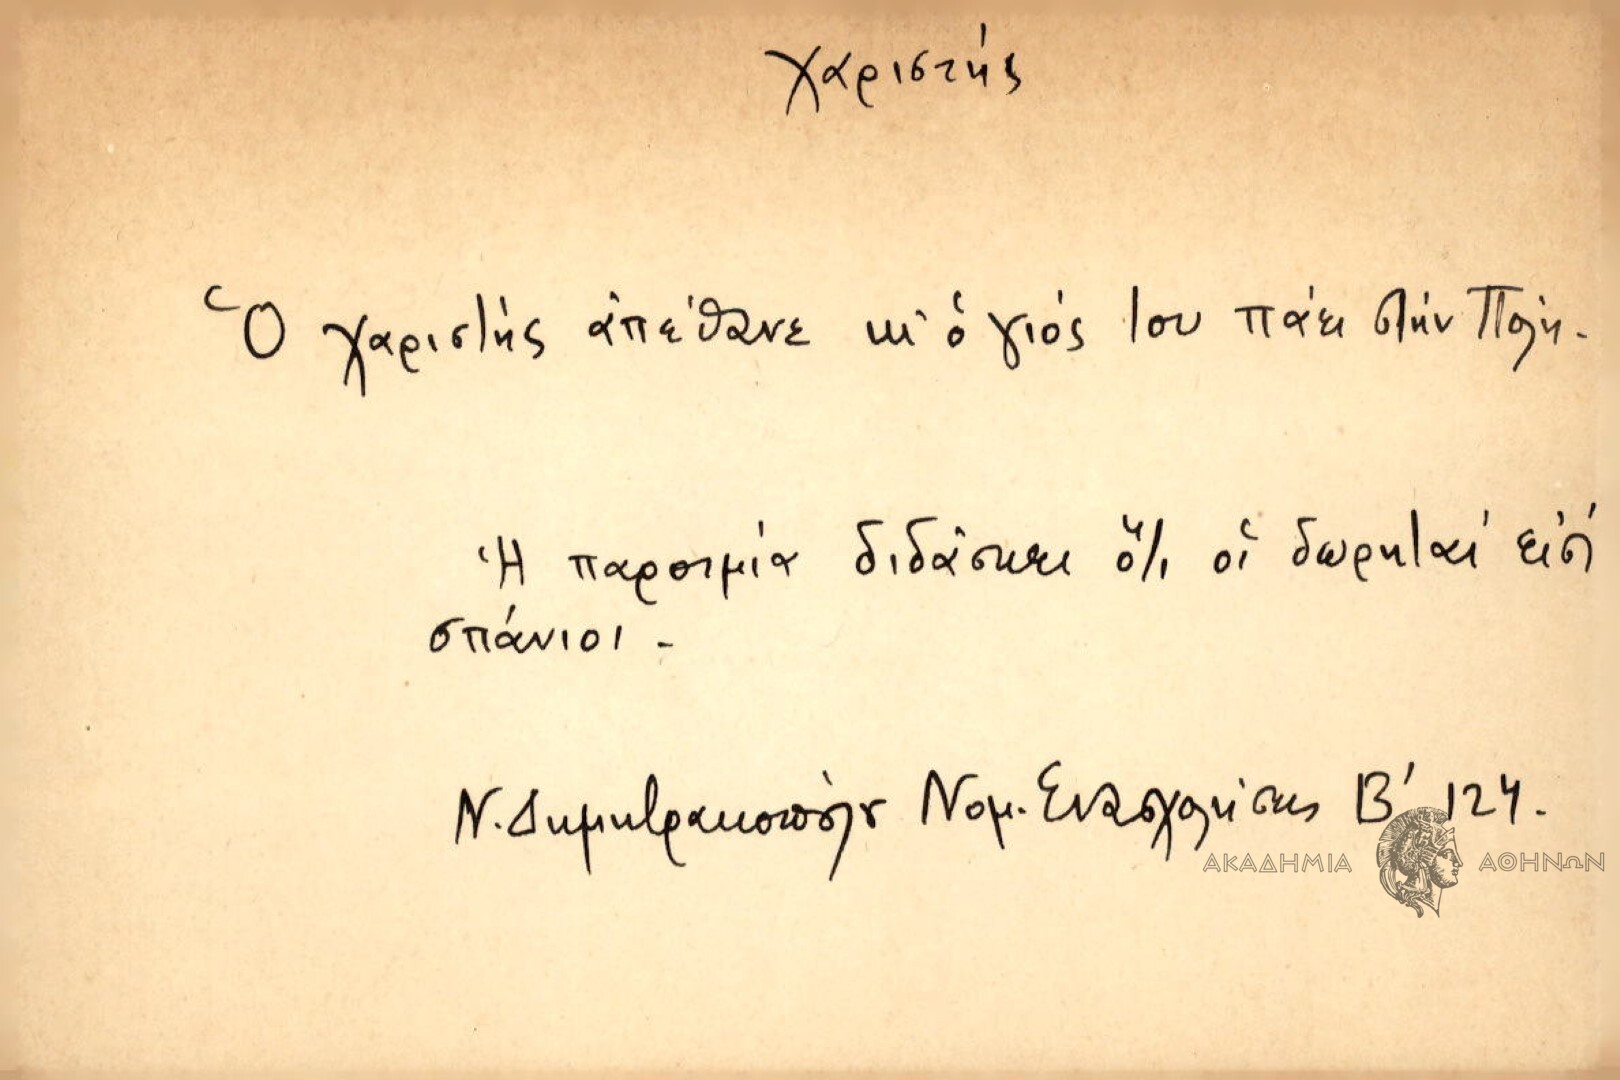 χαριστής
Ὁ χαριστής ἀπέθανε κι' ὁ γιός του πάει στήν Πόλη.
Ἡ παροιμία διδάσκει ὅτι οἱ δωρηταί εἰσί
σπάνιοι.
Ν. Δημητρακοπούλου Νομ. Ἐνασχολήσεις Β' 124.
ΑΚΑΔΗΜΙΑ ΑΘΗΝΩΝ